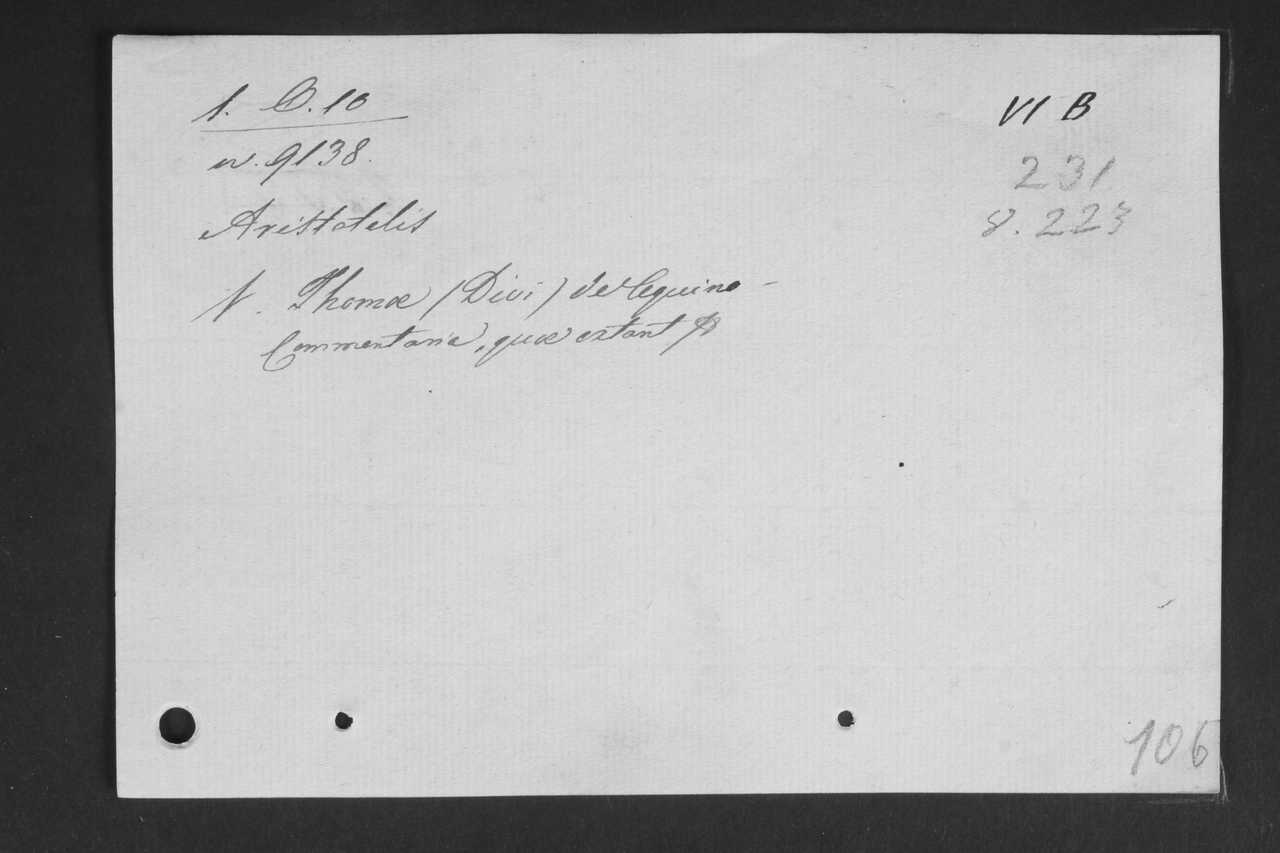 1. B. 10
n. 9138.
Aristotelis
V. Thomæ (Divi) de Aquino -
Commentaria, quæ extant
VI B
231
8. 223
106